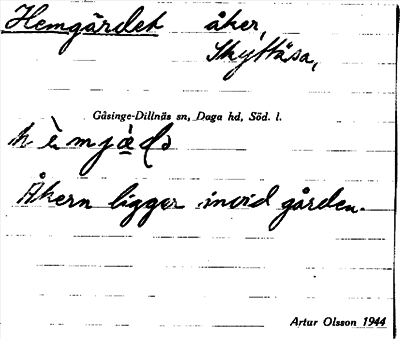 Hemgärdet åker,
Skyttåsa,
Gåsinge-Dillnäs sn, Daga hd, Söd. l.
Åkern ligger invid gården.
Artur Olsson 1944